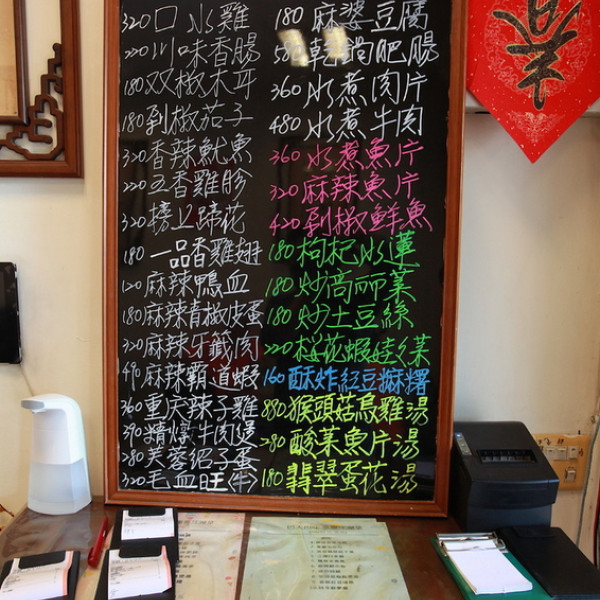 320 口水雞
220 川味香腸
180 双椒木耳
180 剁椒茄子
320 香辣魷魚
220 五香雞胗
320 蹄花
180 一品香雞翅
120 麻辣鴨血
180 麻辣青椒皮蛋
320 麻辣牙籤肉
490 麻辣霸道蝦
360 重庆辣子雞
390 精燉牛肉煲
280 芙蓉绍子蛋
320 毛血旺(牛)
180 麻婆豆腐
580 乾鍋肥腸
360 水煮肉片
480 水煮牛肉
360 水煮魚片
320 麻辣魚片
420 剁椒鮮魚
180 枸杞水蓮
180 炒高丽菜
180 炒土豆絲
220 樱花蝦娃娃菜
160 酥炸紅豆麻糬
880 猴頭菇烏雞湯
280 酸菜魚片湯
180 翡翠蛋花湯